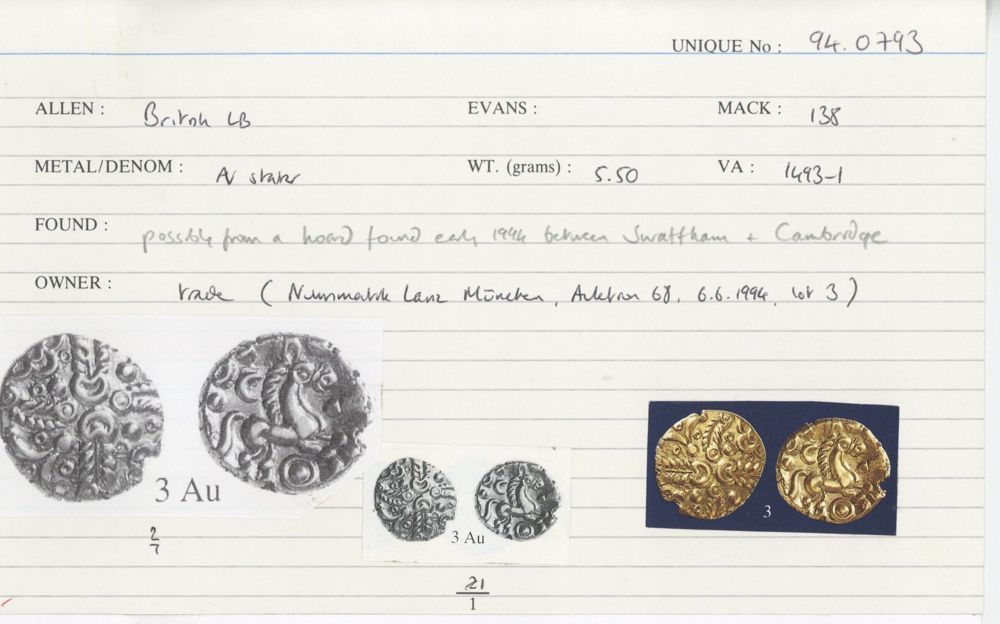 UNIQUE No : 94.0793
ALLEN : British LB EVANS : MACK : 138
METAL/DENOM : AV stater WT. (grams) : 5.50 VA : 1493-1
FOUND : possible from a hoard found early 1994 between Swaffham + Cambridge
OWNER : trade ( Numismatik Lanz München, Auktion 68, 6.6.1994, lot 3 )
3 Au
3 Au
3
2
7
21
1